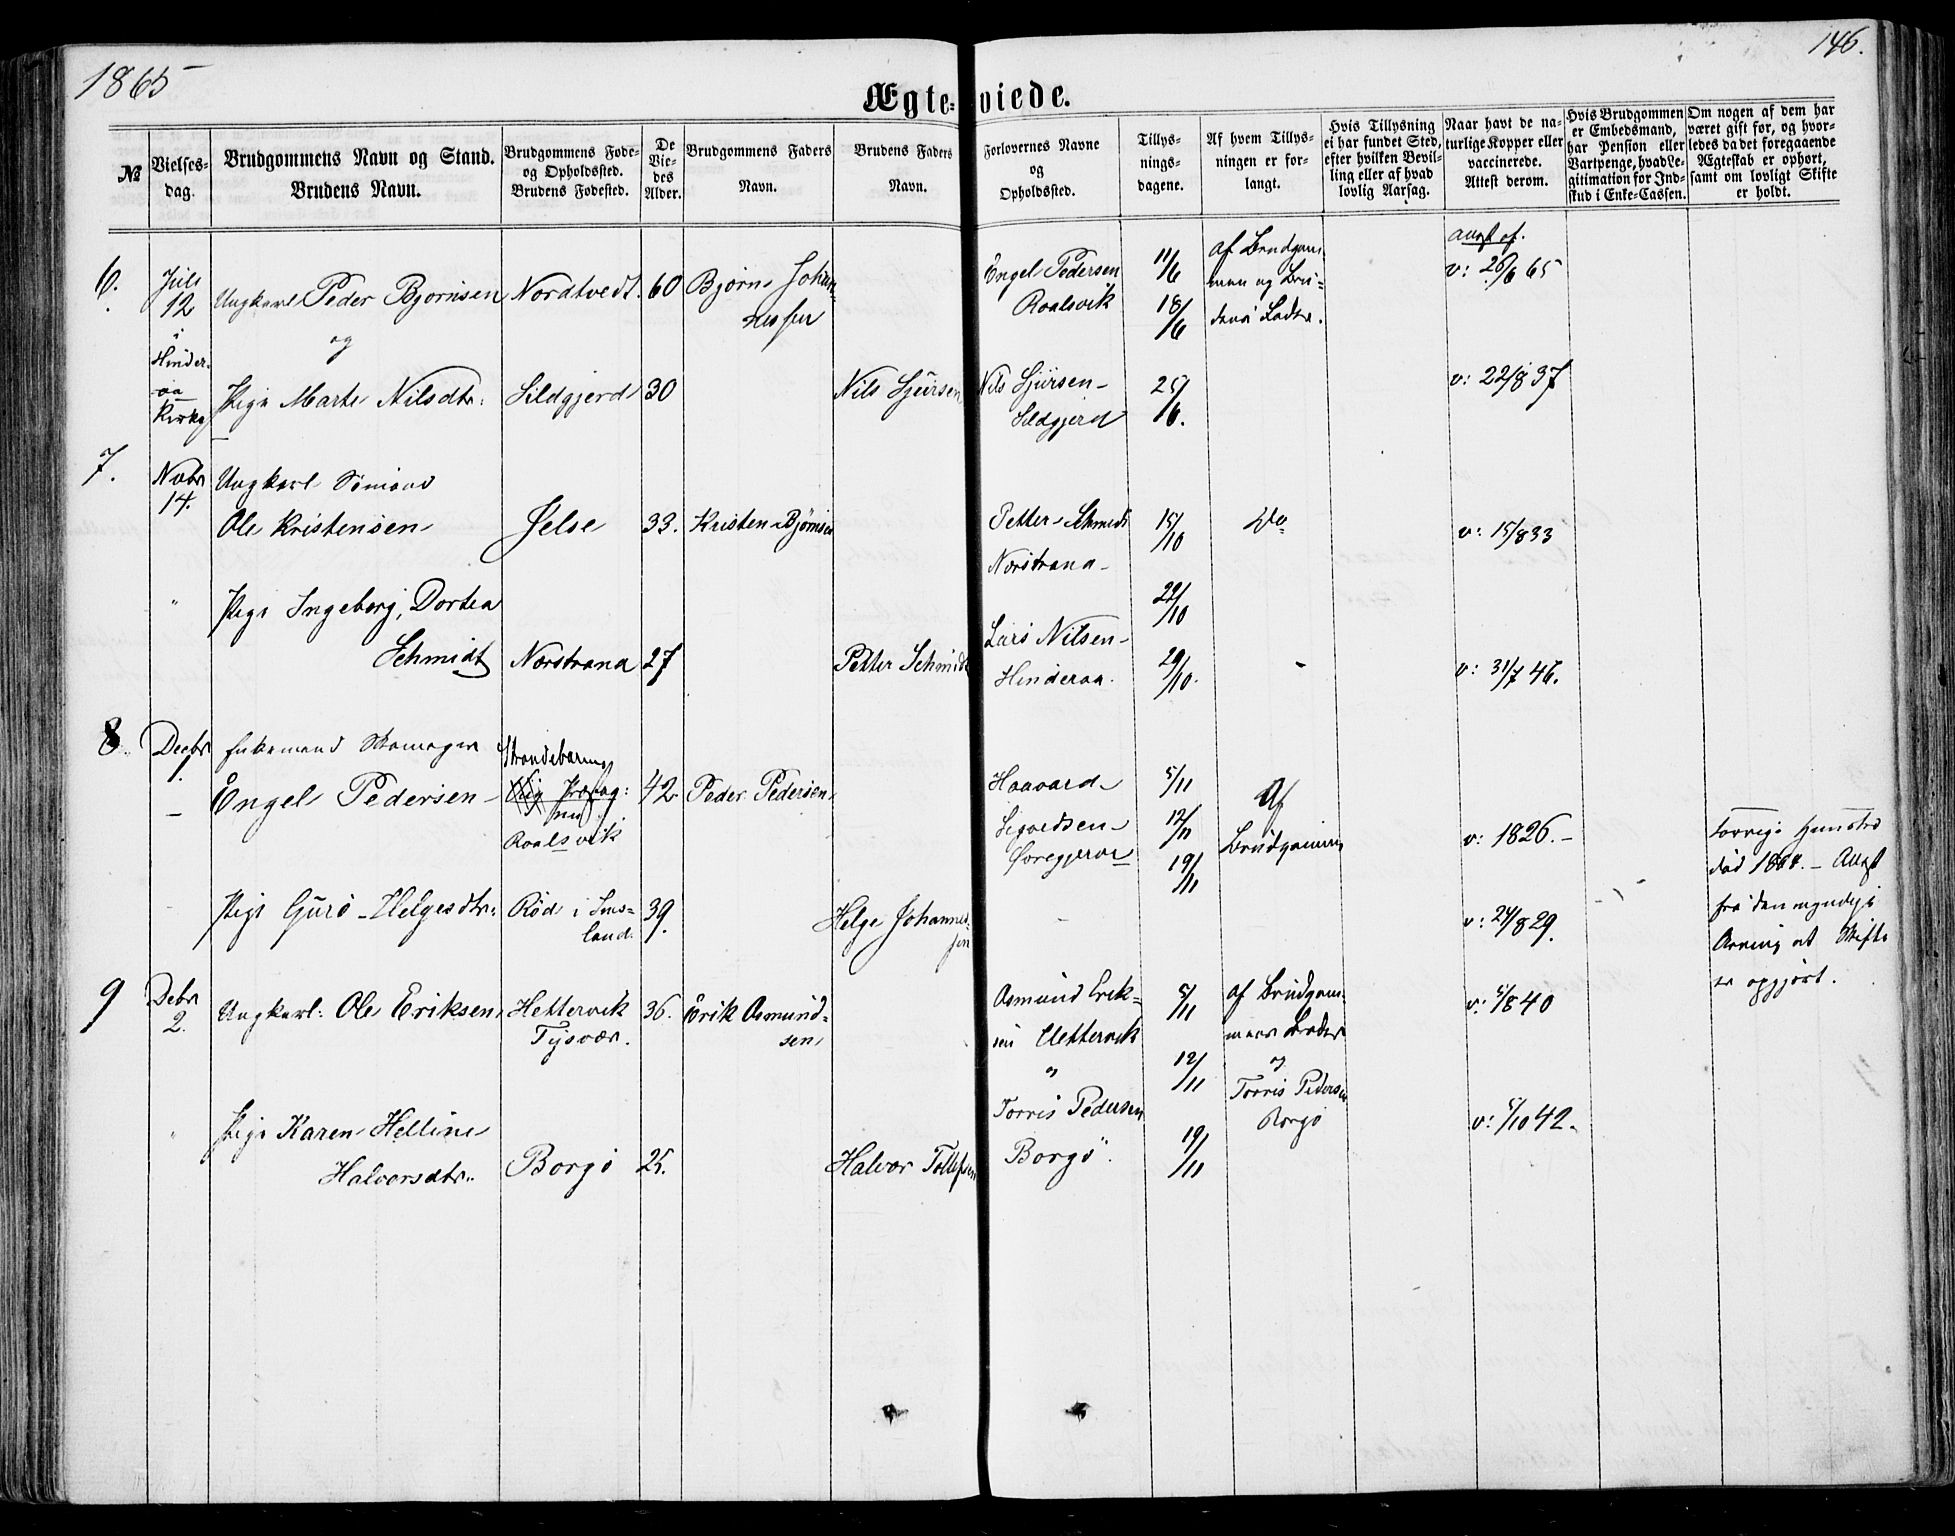 1865
146.
Ægte-viede.
№
Vielses-
dag.
Brudgommens Navn og Stand.
Brudens Navn.
Brudgommens Føde-
og Opholdssted.
Brudens Fødested.
De
Vie-
des
Alder.
Brudgommens Faders
Navn.
Brudens Faders
Navn.
Forlovernes Navne
og
Opholdssted.
Tillys-
nings-
dagene.
Af hvem Tillys-
ningen er for-
langt.
Hvis Tillysning
ei har fundet Sted,
efter hvilken Bevil-
ling eller af hvad
lovlig Aarsag.
Naar havt de na-
turlige Kopper eller
vaccinerede.
Attest derom.
Hvis Brudgommen
er Embedsmand,
har Pension eller
Vartpenge, hvad Le-
gitimation for Ind-
skud i Enke-Cassen.
Om nogen af dem har
været gift før, og hvor-
ledes da det foregaaende
Ægteskab er ophørt,
samt om lovligt Skifte
er holdt.
6.
Juli
12
i
Hinder-
aa
Kirke
Ungkarl Peder Bjørnsen
og
Pige Marte Nilsdtr:
Nordtvedt
Sildgjerd
60
30
Bjørn Johan-
nessen
Nils Sjursen
Engel Pedersen
Roalsvik
Nils Sjursen
Sildgjerd
11/6
18/6
25/6.
af Brudgom
men og Bru-
dens Fader.
Attest af.
v: 26/6 65
v: 22/8 37
7.
Nvbr
14.
Ungkarl Sømand
Ole Kristensen
Pige Ingeborg, Dortea
Schmidt
Jelse
Norstrand
33.
27
Kristen Bjørnsen
Petter Schmidt
Petter Schmidt
Norstrand
Lars Nilsen
Hinderaa.
15/10
22/10
29/10.
Do
v: 15/8 33
v: 31/7 46.
8
Decbr
1.
Enkemand Skomager
Engel Pedersen
Pige Guro Helgesdtr:
Strandebarm
nu
Roalsvik
Rød i Lens-
land.
42
39.
Peder Pedersen
Helge Johannes-
sen
Haavard
Sigvedsen
5/11
12/11
19/11
Af
Brudgommen
v: 1826.-
v: 24/8 29.
død 1864. - Attest
fra den myndige
Arving at Skifte
er opgjort.
9
Debr
2.
Ungkarl: Ole Eriksen
Pige Karen Helline
Halvorsdtr.
Hettervik
Tysvær.
Borgø
36.
25.
Erik Asmund-
sen
Halvor Tollefsen
Asmund Erik-
sen Hettervik
og
Torris Pedersen
Borgø.
5/11
12/11
19/11
af Brudgom-
mens Broder
og
Torris Pedersen
Borgø
v: 5/8 40
v: 5/10 42.